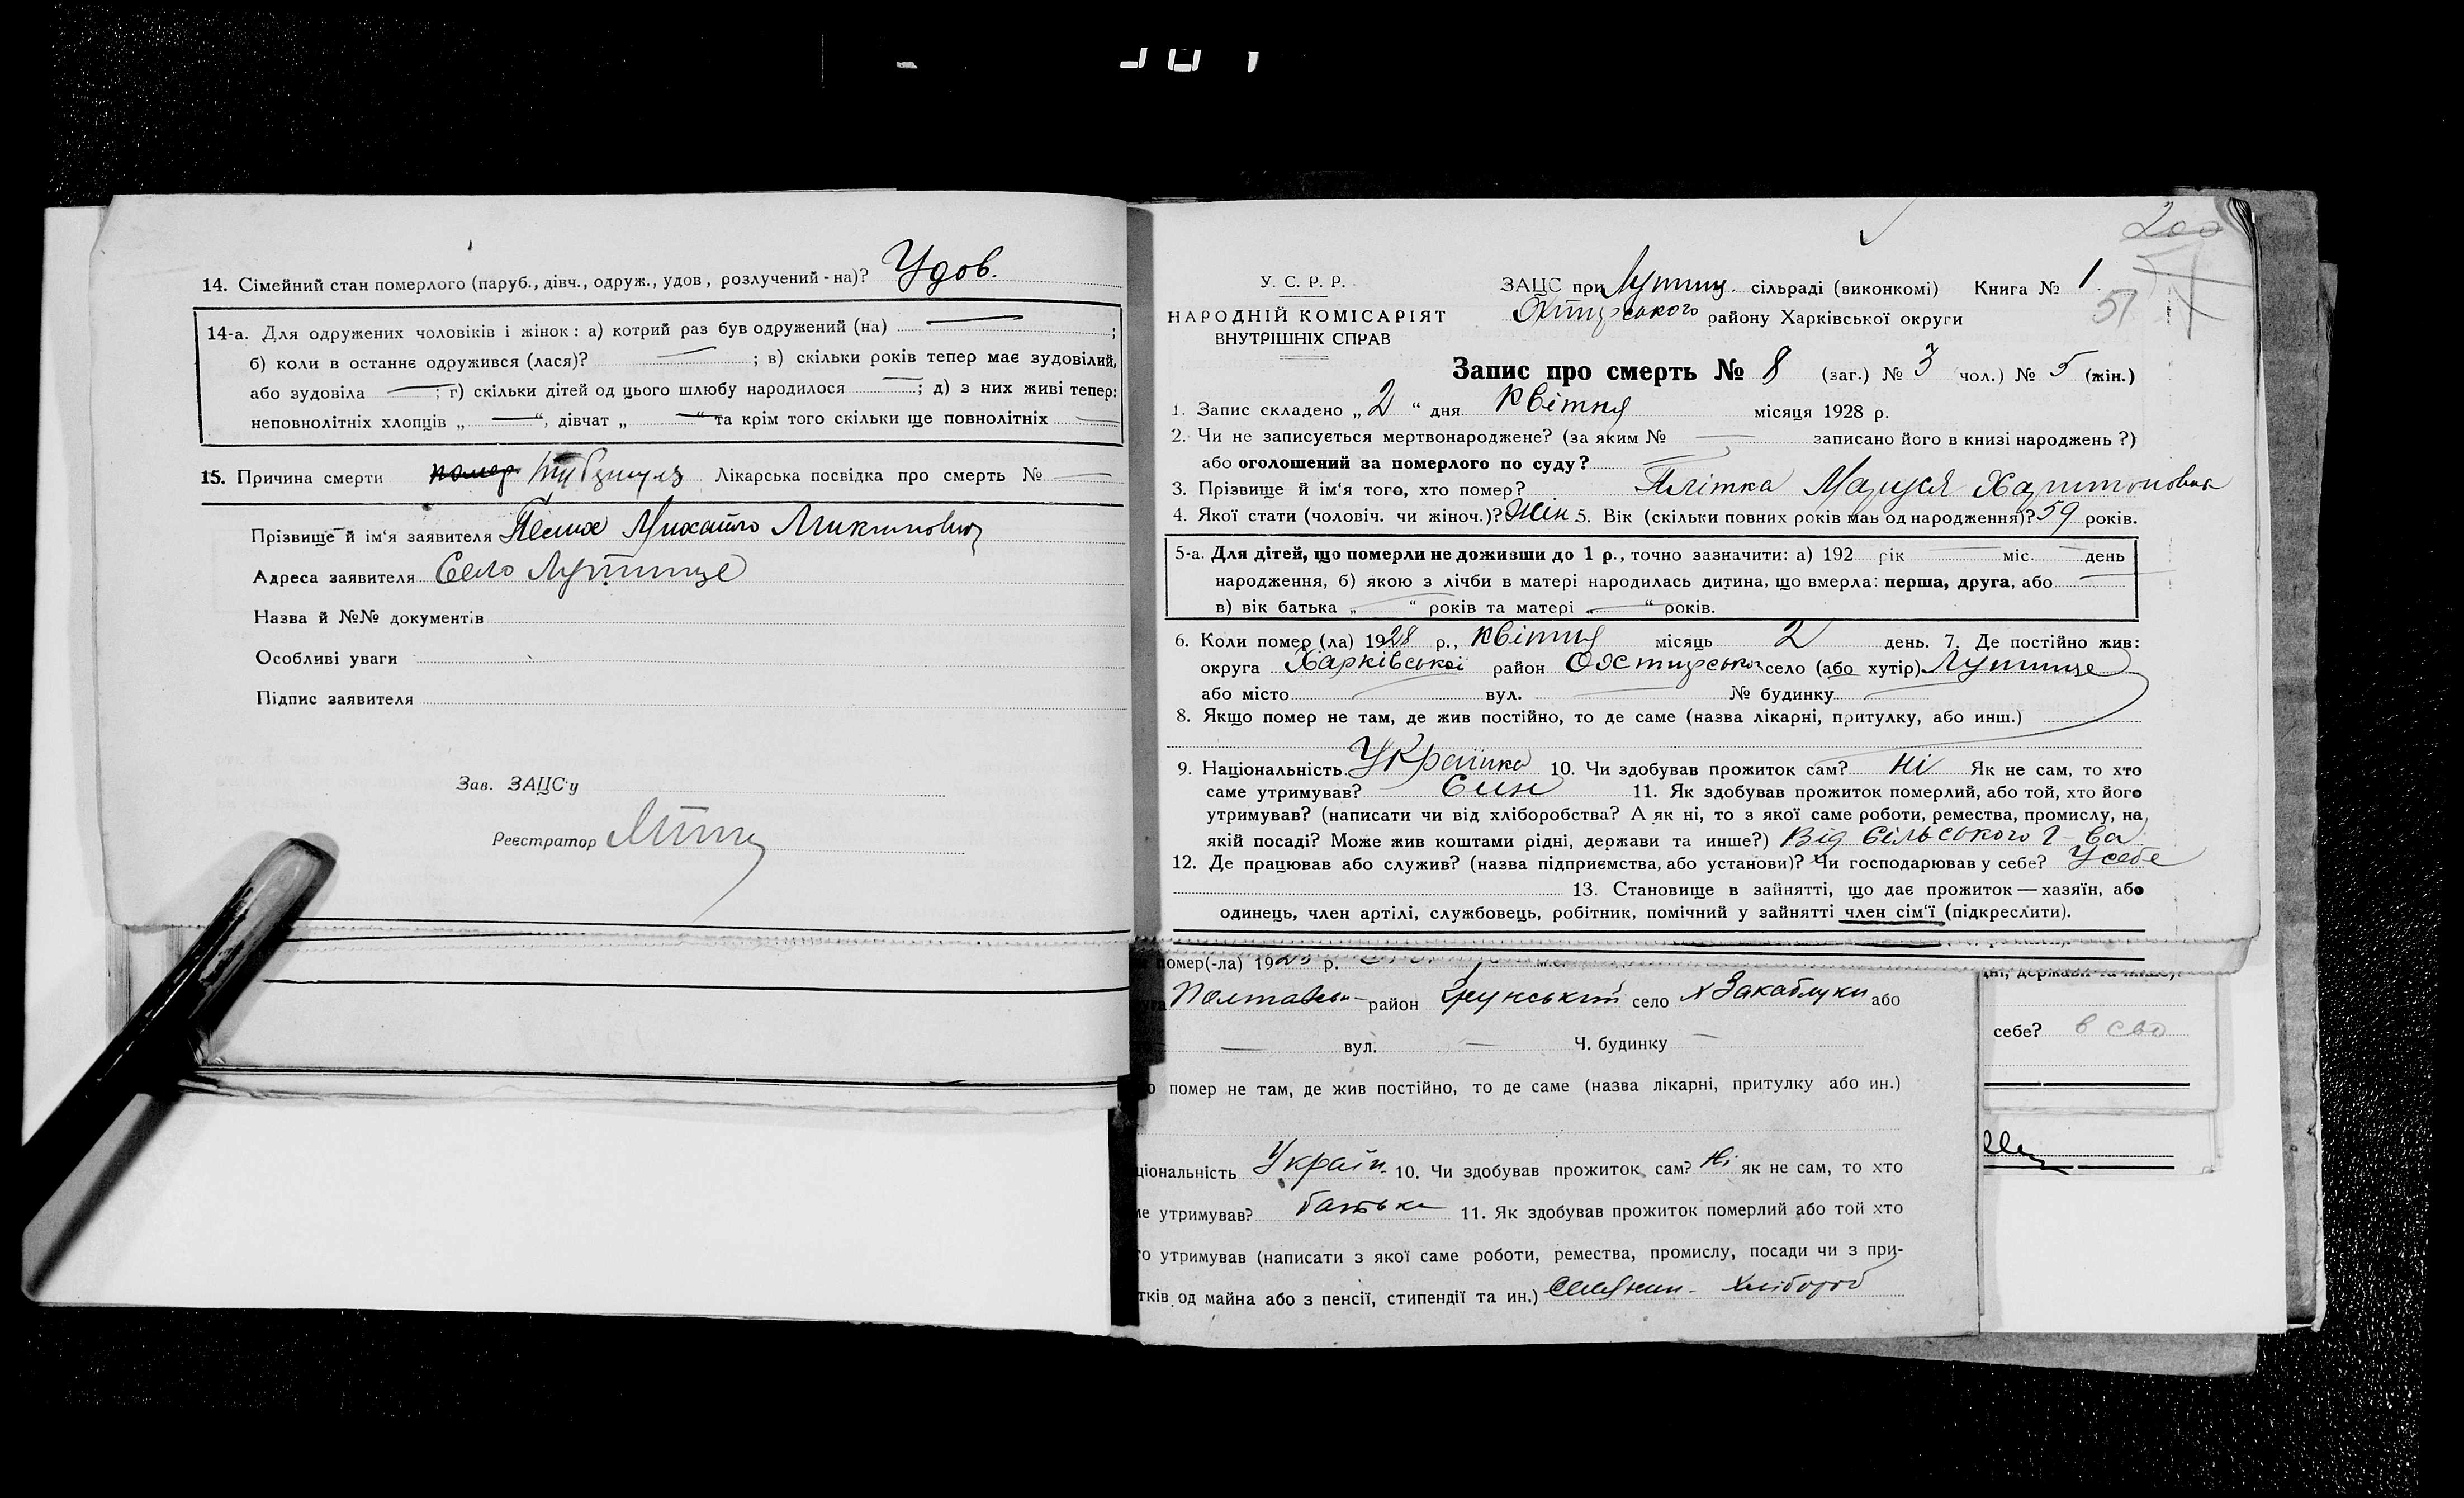 14. Сімейний стан померлого (паруб., дівч., одруж., удов, розлучений-на)? Удов.
14-а. Для одружених чоловіків і жінок: а) котрий раз був одружений (на) ;
б) коли в останнє одружився (лася)? ; в) скільки років тепер має зудовілий,
або зудовіла ; г) скільки дітей од цього шлюбу народилося ; д) з них живі тепер:
неповнолітніх хлопців „ “, дівчат „ “ та крім того скільки ще повнолітніх
15. Причина смерти Лікарська посвідка про смерть №
Прізвище й ім'я заявителя Михайло
Адреса заявителя Село Лутище
Назва й №№ документів
Особливі уваги
Підпис заявителя
Зав. ЗАЦС'у
Реєстратор
200
51
У. С. Р. Р.
НАРОДНІЙ КОМІСАРІЯТ
ВНУТРІШНІХ СПРАВ
ЗАЦС при Лутищ. сільраді (виконкомі) Книга № 1
Охтирського району Харківської округи
Запис про смерть № 8 (заг.) № 3 чол.) № 5 (жін.)
1. Запис складено „ 2 “ дня Квітня місяця 1928 р.
2. Чи не записується мертвонароджене? (за яким № записано його в книзі народжень?)
або оголошений за померлого по суду?
3. Прізвище й ім'я того, хто помер? Плітка Маруся Харитоновна
4. Якої стати (чоловіч. чи жіноч.)? Жін 5. Вік (скільки повних років мав од народження)? 59 років.
5-а. Для дітей, що померли не доживши до 1 р., точно зазначити: а) 192 рік міс. день
народження, б) якою з лічби в матері народилась дитина, що вмерла: перша, друга, або
в) вік батька „ “ років та матері „ “ років.
6. Коли помер (ла) 1928 р., квітня місяць 2 день. 7. Де постійно жив:
округа Харківської район Охтирсько село (або хутір) Лутище
або місто вул. № будинку
8. Якщо помер не там, де жив постійно, то де саме (назва лікарні, притулку, або инш.)
9. Національність Українка 10. Чи здобував прожиток сам? Ні Як не сам, то хто
саме утримував? Син 11. Як здобував прожиток померлий, або той, хто його
утримував? (написати чи від хліборобства? А як ні, то з якої саме роботи, ремества, промислу, на
якій посаді? Може жив коштами рідні, держави та инше?) Від сільського г-ва
12. Де працював або служив? (назва підприємства, або установи)? Чи господарював у себе? У себе
13. Становище в зайнятті, що дає прожиток — хазяїн, або
одинець, член артілі, службовець, робітник, помічний у зайнятті член сім'ї (підкреслити).
помер(-ла) 192 р.
район село х Закаблуки або
вул. Ч. будинку
помер не там, де жив постійно, то де саме (назва лікарні, притулку або ин.)
ціональність Україн. 10. Чи здобував прожиток сам? Ні як не сам, то хто
ме утримував? батьки 11. Як здобував прожиток померлий або той хто
го утримував (написати з якої саме роботи, ремества, промислу, посади чи з при-
тків од майна або з пенсії, стипендії та ин.) Селянин - хлібороб
себе? в сво